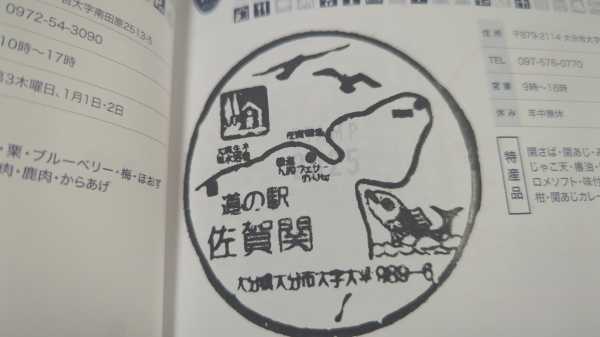 大字南田原2513-5
0972-54-3090
10時〜17時
3木曜日、1月1日・2日
・栗・ブルーベリー・梅・ほおず
肉・鹿肉・からあげ
道の駅
佐賀関
大分県大分市大字大平989-6
住所
〒879-2114 大分市大字
TEL
097-576-0770
営業
9時〜18時
休み
年中無休
特産品
関さば・関あじ・み
じゃこ天・醤油・
ロメソフト・味付
柑・関あじカレー